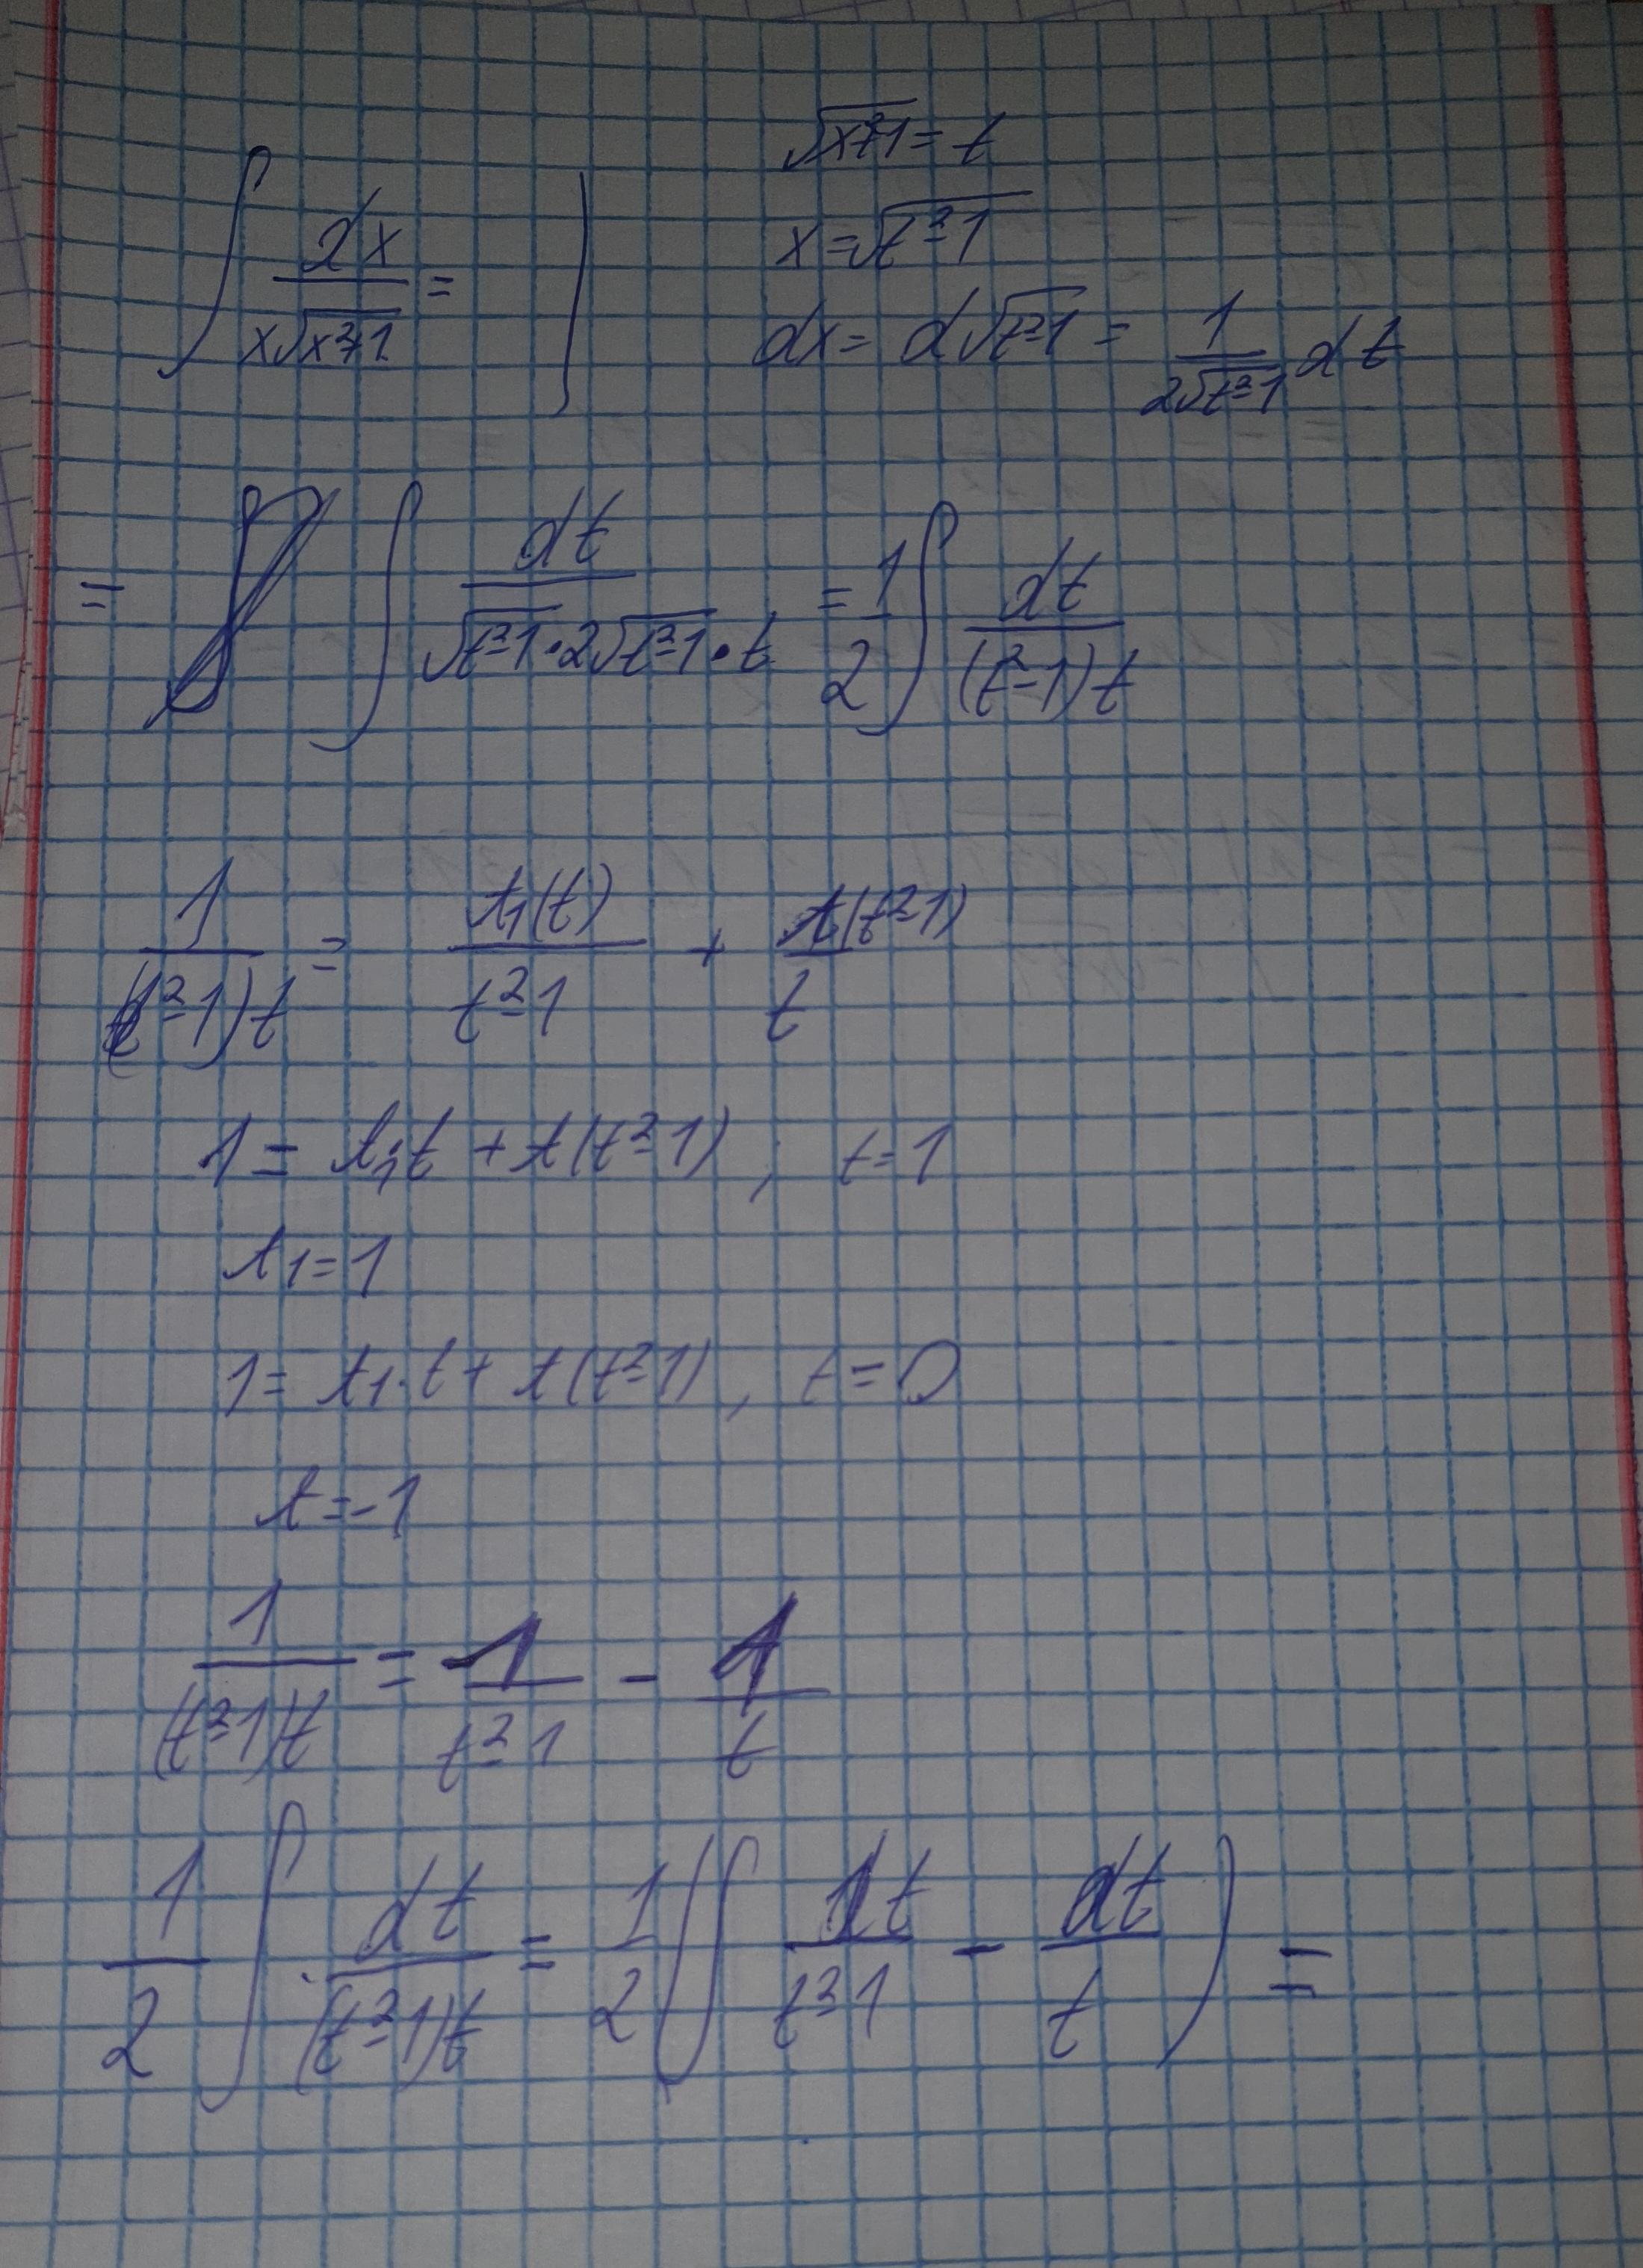 ∫ dx / (x√(x²+1)) = | √(x²+1) = t
x = √(t²-1)
dx = d√(t²-1) = 1/(2√(t²-1)) dt
= ∫ dt / (√(t²-1) · 2√(t²-1) · t) = 1/2 ∫ dt / ((t²-1)t)
1/((t²-1)t) = t₁(t)/(t²-1) + t(t²-1)/t
1 = t₁t + t(t²-1), t=1
t₁=1
1 = t₁·t + t(t²-1), t=0
t=-1
1/((t²-1)t) = 1/(t²-1) - 1/t
1/2 ∫ dt/((t²-1)t) = 1/2 (∫ dt/(t²-1) - dt/t) =